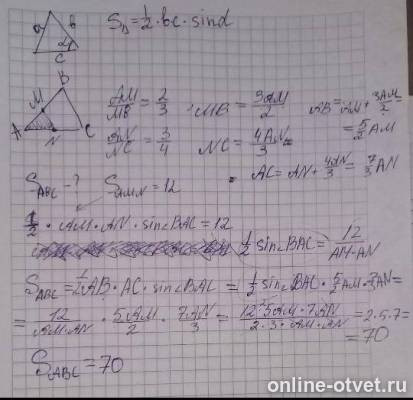 a b α c
S_Δ = 1/2 · bc · sin α
B M A N C
AM/MB = 2/3 MB = 3AM/2 AB = AM + 3AM/2 =
= 5/2 AM
AN/NC = 3/4 NC = 4AN/3
AC = AN + 4AN/3 = 7/3 AN
S_ABC - ? S_AMN = 12
1/2 · AM · AN · sin∠BAC = 12
1/2 sin∠BAC = 12/(AM·AN)
S_ABC = 1/2 AB · AC · sin∠BAC = 1/2 sin∠BAC · 5/2 AM · 7/3 AN =
= 12/(AM·AN) · 5AM/2 · 7AN/3 = (12·5AM·7AN)/(2·3·AM·AN) = 2·5·7 =
= 70
S_ABC = 70
online-otvet.ru